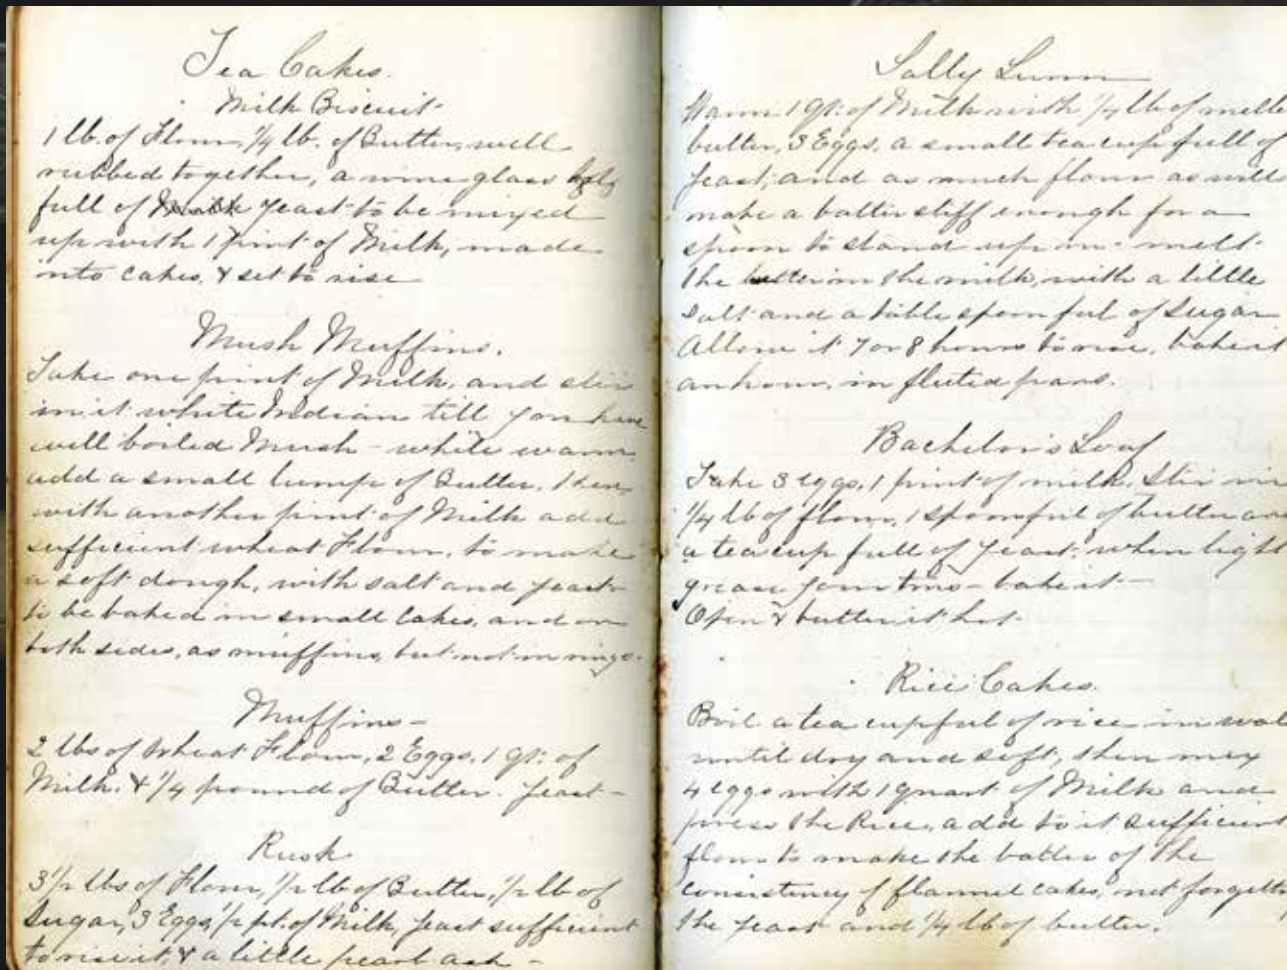 Tea Cakes.
Milk Biscuit
1 lb. of Flour, 1/4 lb. of Butter, well
rubbed together, a wine glass half
full of Yeast to be mixed
up with 1 pint of Milk, made
into cakes, & set to rise
Mush Muffins.
Take one pint of Milk, and stir
in it white Indian till you have
well boiled Mush - while warm
add a small lump of Butter. Then
with another pint of Milk add
sufficient wheat Flour, to make
a soft dough, with salt and yeast
to be baked in small cakes, and on
both sides, as muffins, but not in rings.
Muffins -
2 lbs of Wheat Flour, 2 Eggs. 1 qt: of
Milk. & 1/4 pound of Butter. Yeast -
Rusk
3 1/2 lbs of Flour, 1/2 lb of Butter, 1/2 lb of
Sugar, 3 Eggs, 1/2 pt. of Milk, Yeast sufficient
to rise it, & a little pearl ash -
Sally Lunn
Warm 1 qt: of Milk with 1/4 lb of melte
butter, 3 Eggs, a small tea cup full of
Yeast, and as much flour as will
make a batter stiff enough for a
spoon to stand up in - melt
the butter in the milk, with a little
Salt and a table spoon ful of Sugar
Allow it 7 or 8 hours to rise, bake it
an hour, in fluted pans.
Bachelor's Loaf
Take 3 eggs, 1 pint of milk. Stir in
1/4 lb of flour, 1 spoonful of butter an
a tea cup full of Yeast, when light
grease your tins - bake it -
Open & butter it hot
Rice Cakes.
Boil a tea cupful of rice in wat
until dry and soft, then mix
4 eggs with 1 quart of Milk and
press the Rice, add to it sufficient
flour to make the batter of the
consistency of flannel cakes, not forgett
the yeast and 1/4 lb of butter.